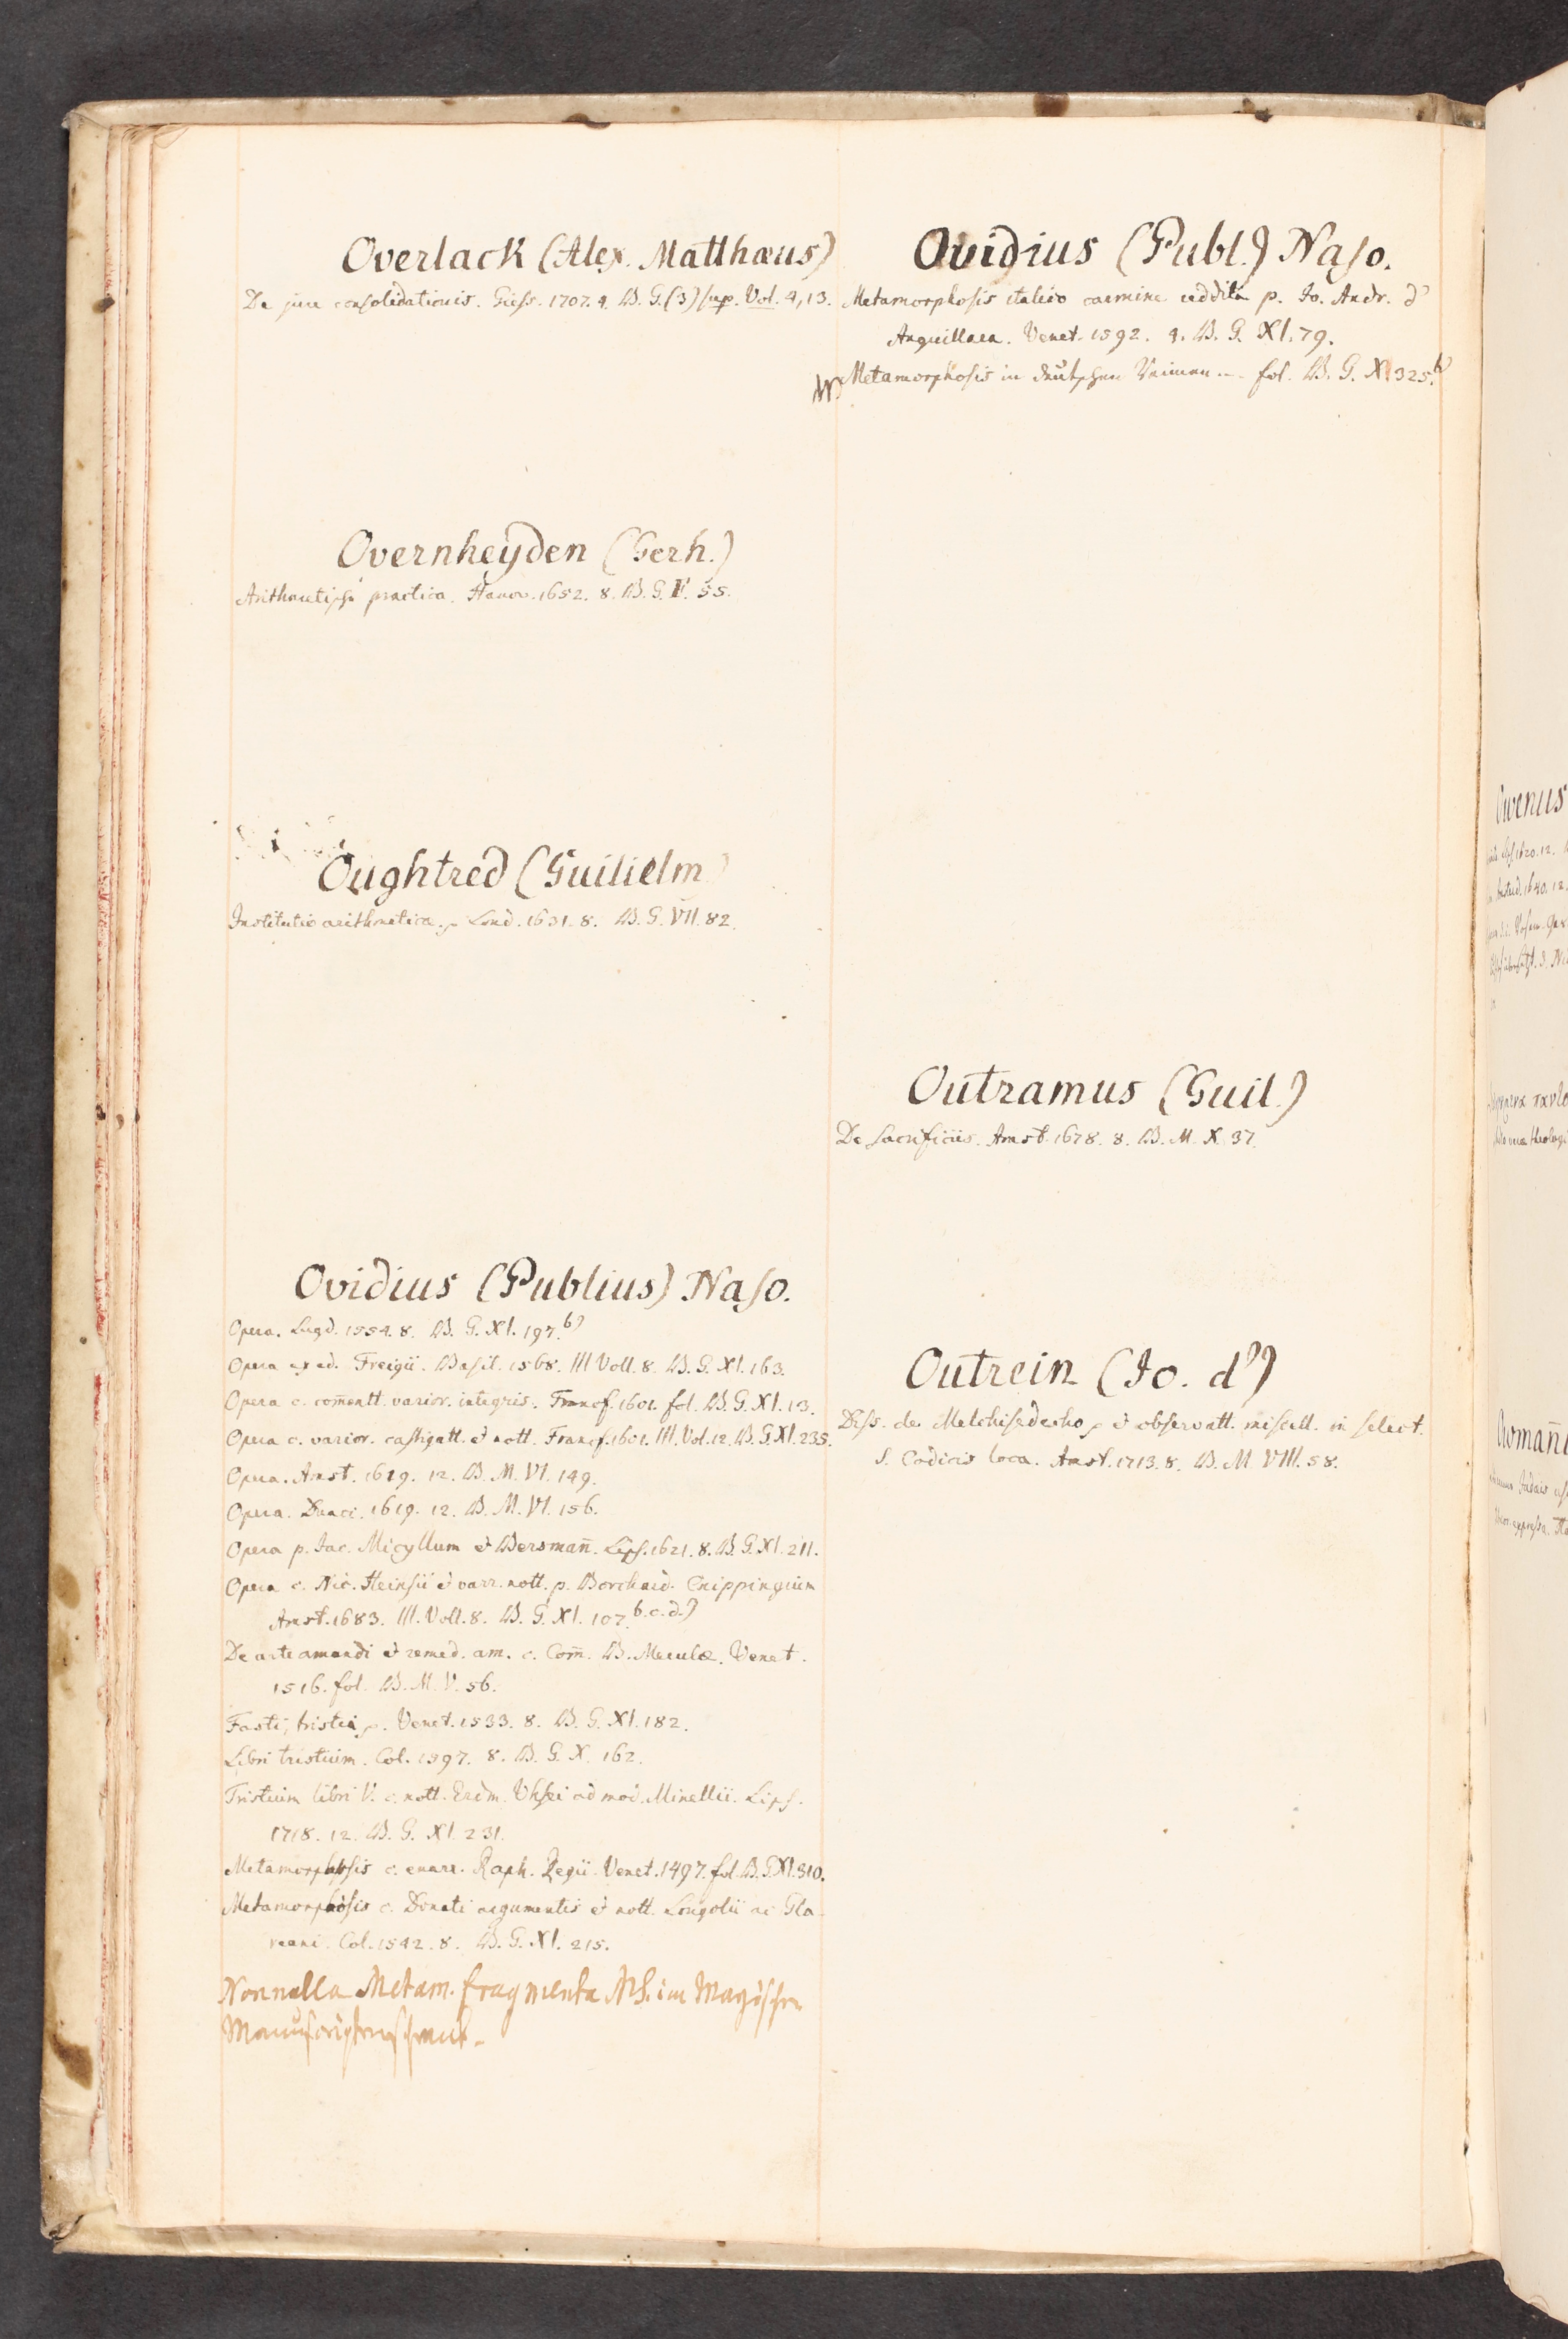 Overlack (Alex. Matthæus)
De jure consolidationis. Giess. 1707. 4. B. G. (3) sup. Vol. 4,13.
Overnheyden (Gerh.)
Arithmetische practica. Hanov. 1652. 8. B. G. F. 55.
Oughtred (Guilielm.)
Institutio arithmetica. Lond. 1631. 8. B. G. VII. 82.
Ovidius (Publius) Naso.
Opera. Lugd. 1554. 8. B. G. XI. 197. b)
Opera ex ed. Freigii. Basil. 1568. III Voll. 8. B. G. XI. 163.
Opera c. com̄entt. varior. integris. Francf. 1601. fol. B. G. XI. 13.
Opera c. varior. castigatt. et nott. Francf. 1601. III. Vol. 12. B. G. XI. 235.
Opera. Amst. 1619. 12. B. M. VI. 149.
Opera. Duaci. 1619. 12. B. M. VI. 156.
Opera p. Jac. Micyllum et Bersman̄. Lips. 1621. 8. B. G. XI. 211.
Opera c. Nic. Heinsii et varr. nott. p. Borchard. Cnippingium
Amst. 1683. III. Voll. 8. B. G. XI. 107. b.c.d.)
De arte amandi et remed. am. c. Com̄. B. Merulæ. Venet.
1516. fol. B. M. V. 56.
Fasti, tristia. Venet. 1533. 8. B. G. XI. 182.
Libri tristium. Col. 1597. 8. B. G. X. 162.
Tristium libri V. c. nott. Erdm. Uhsei ad mod. Minellii. Lips.
1718. 12. B. G. XI. 231.
Metamorphosis c. enarr. Raph. Regii. Venet. 1497. fol. B. G. XI. 310.
Metamorphosis c. Donati argumentis et nott. Longolii ac Gla-
reani. Col. 1542. 8. B. G. XI. 215.
Nonnulla Metam. fragmenta MS. im Mayischen
Manuscriptenschrank.
Ovidius (Publ.) Naso.
Metamorphosis italico carmine reddita p. Io. Andr. d'
Anguillara. Venet. 1592. 4. B. G. XI. 79.
Metamorphosis in deutschen Reimen. fol. B. G. XI 325. b)
Outramus (Guil.)
De Sacrificiis. Amst. 1678. 8. B. M. X. 37.
Outrein (Io. d')
Diss. de Melchisedecho et observatt. miscell. in select.
S. Codicis loca. Amst. 1713. 8. B. M. VIII. 58.